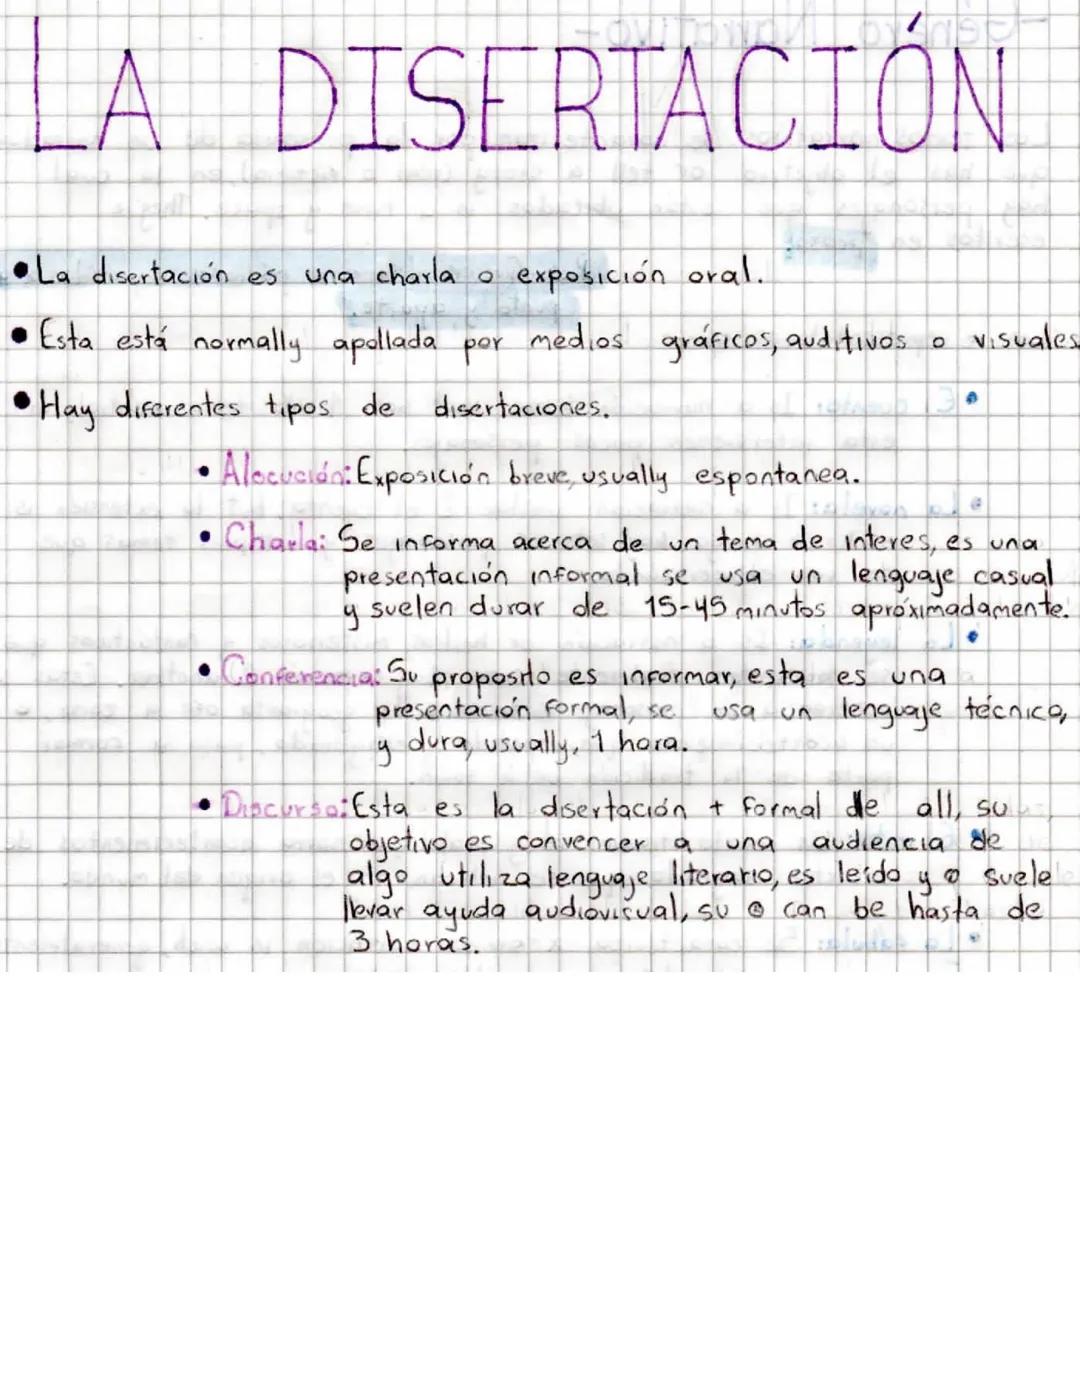 LA DISERTACIÓN
• La disertación es una charla o exposición oral.
• Esta está normally apollada por medios gráficos, auditivos o visuales
• Hay diferentes tipos de disertaciones.
• Alocución: Exposición breve, usually espontanea.
• Charla: Se informa acerca de un tema de interes, es una
presentación informal se usa un lenguaje casual
y suelen durar de 15-45 minutos apróximadamente.
• Conferencia: Su proposito es informar, esta es una
presentación formal, se usa un lenguaje técnico,
y dura, usually, 1 hora.
• Discurso: Esta es la disertación + formal de all, su
objetivo es convencer a una audiencia de
algo utiliza lenguaje literario, es leído y suele
llevar ayuda audiovisual, su can be hasta de
3 horas.